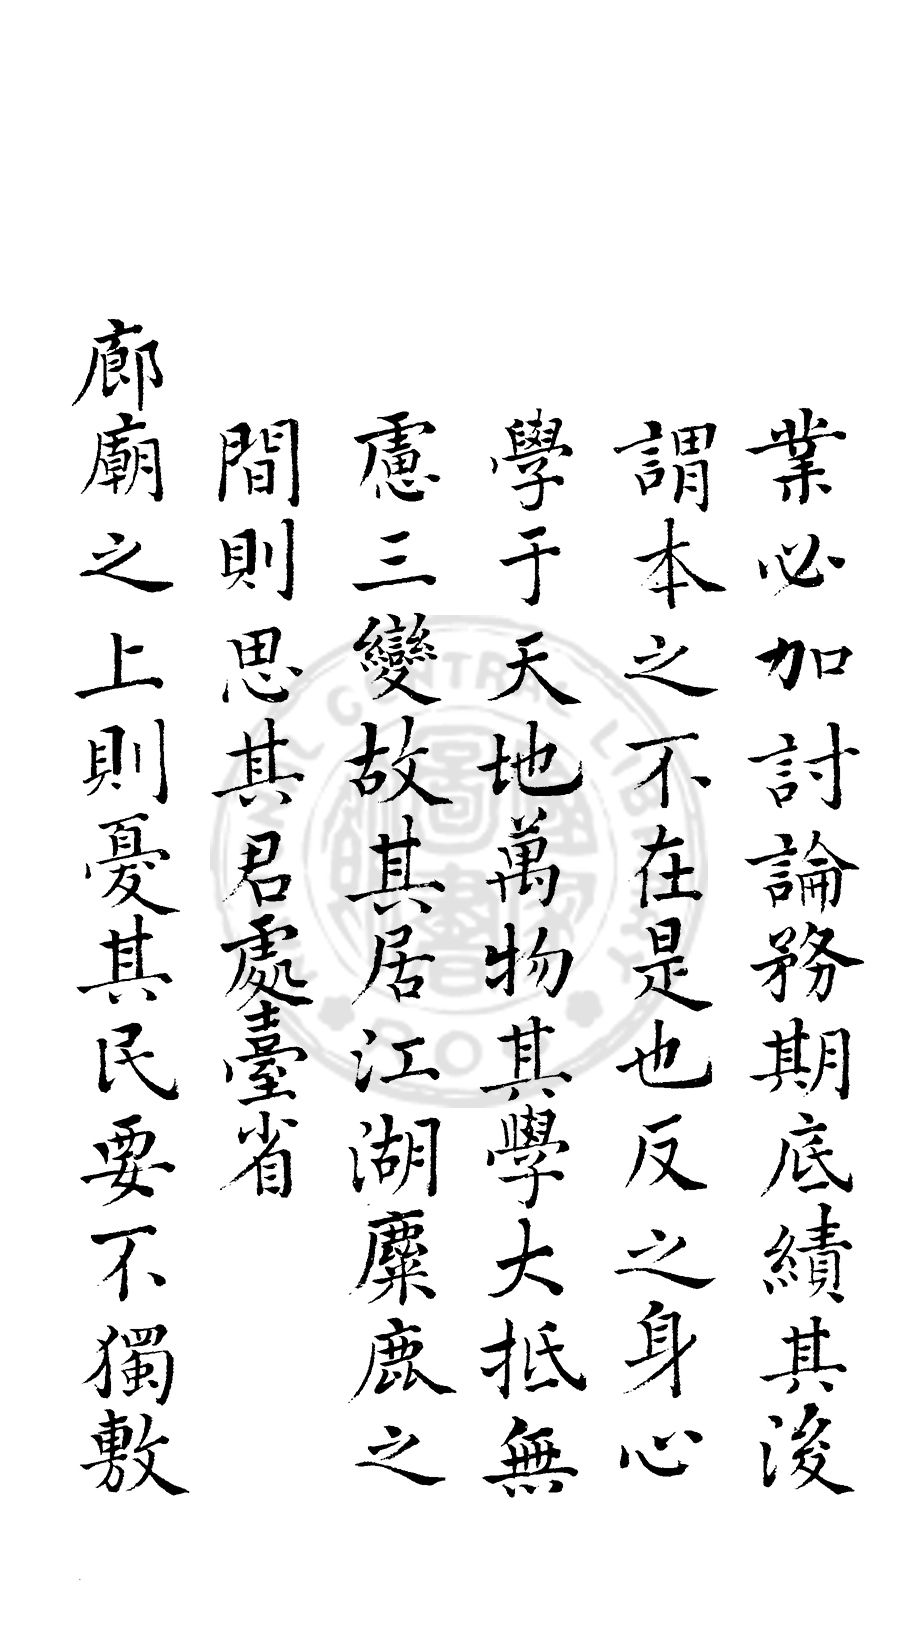 業必加討論務期底績其後
謂本之不在是也反之身心
學于天地萬物其學大抵無
慮三變故其居江湖麋鹿之
間則思其君處臺省
廊廟之上則憂其民要不獨敷